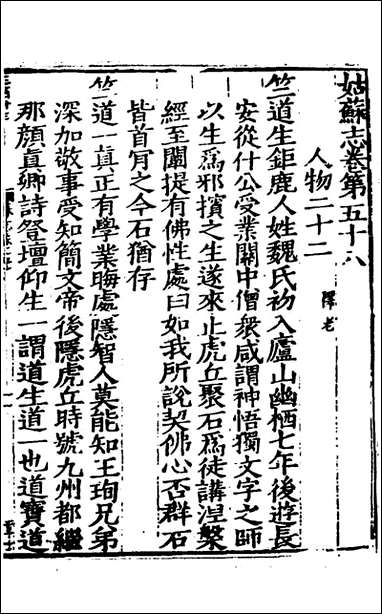 姑蘇志卷第五十八
人物二十二 釋老
竺道生鉅鹿人姓魏氏初入廬山幽栖七年後遊長
安從什公受業關中僧衆咸謂神悟獨文字之師
以生爲邪擯之生遂來止虎丘聚石爲徒講涅槃
經至闡提有佛性處曰如我所說契佛心否群石
皆首肎之今石猶存
竺道一貞正有學業晦處隱智人莫能知王珣兄弟
深加敬事受知簡文帝後隱虎丘時號九州都繼
那顔眞卿詩登壇仰生一謂道生道一也道寶道